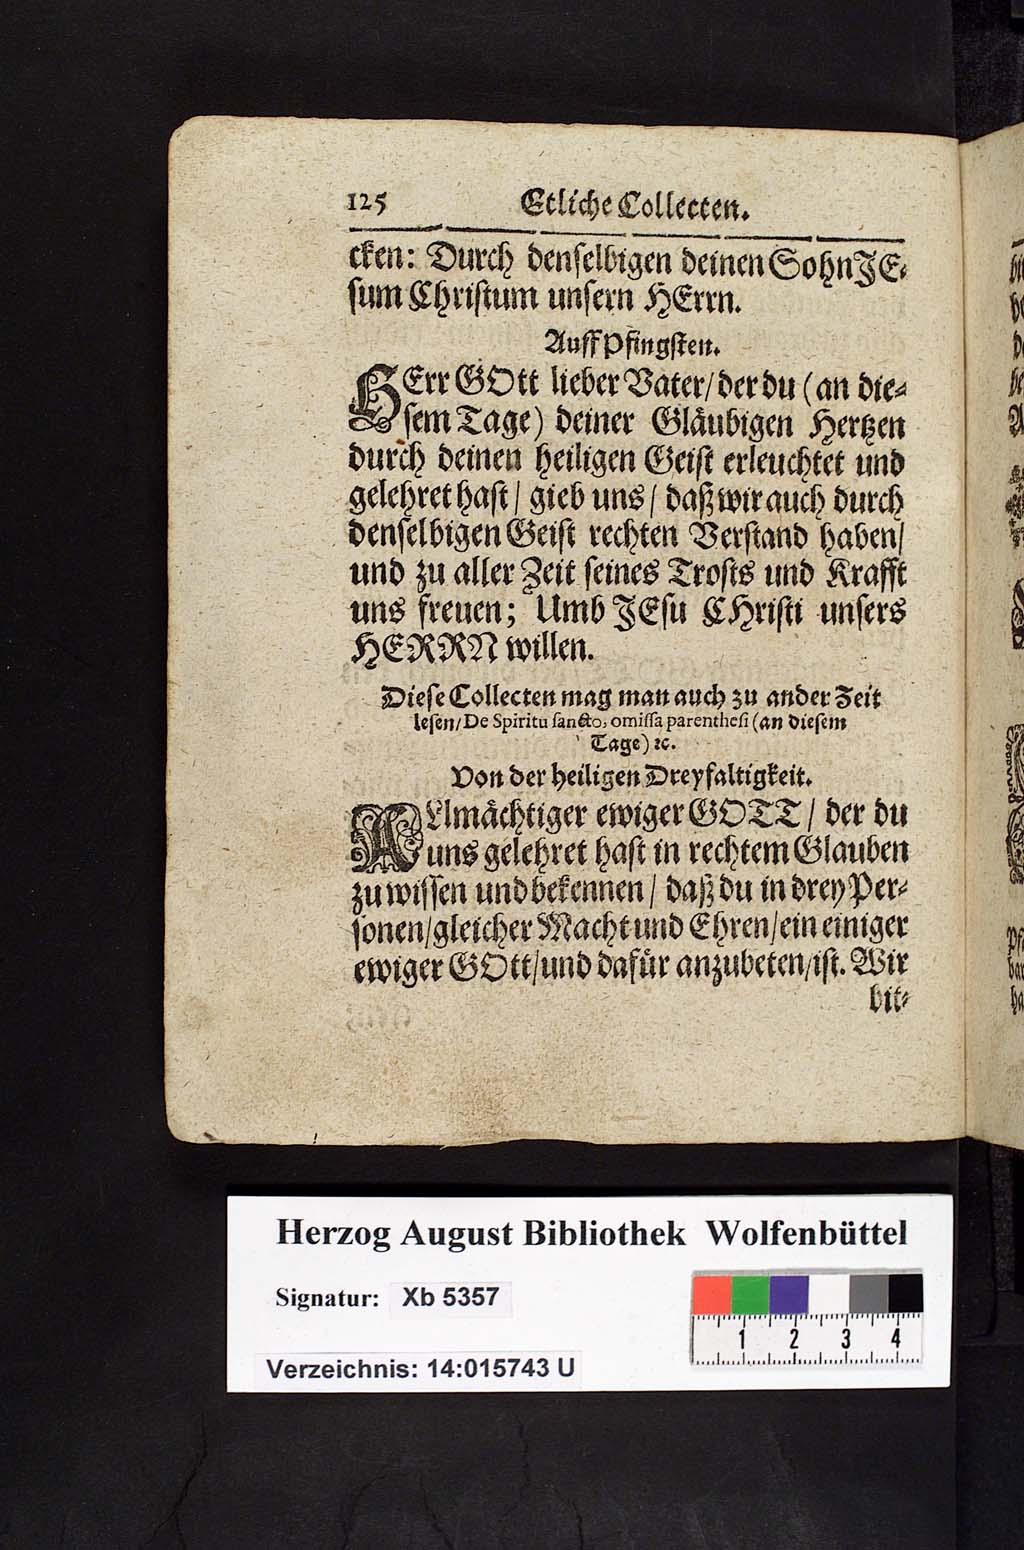 125 Etliche Collecten.
cken: Durch denselbigen deinen Sohn JE-
sum Christum unsern HErrn.
Auff Pfingsten.
HErr GOtt lieber Vater/ der du (an die-
sem Tage) deiner Gläubigen Hertzen
durch deinen heiligen Geist erleuchtet und
gelehret hast/ gieb uns/ daß wir auch durch
denselbigen Geist rechten Verstand haben/
und zu aller Zeit seines Trosts und Krafft
uns freuen; Umb JEsu CHristi unsers
HERRN willen.
Diese Collecten mag man auch zu ander Zeit
lesen/ De Spiritu sancto, omissa parenthesi (an diesem
Tage) ꝛc.
Von der heiligen Dreyfaltigkeit.
ALlmächtiger ewiger GOTT/ der du
uns gelehret hast in rechtem Glauben
zu wissen und bekennen/ daß du in drey Per-
sonen/ gleicher Macht und Ehren/ ein einiger
ewiger GOtt/ und dafür anzubeten/ ist. Wir
bit-
Herzog August Bibliothek Wolfenbüttel
Signatur: Xb 5357
Verzeichnis: 14:015743 U
1 2 3 4